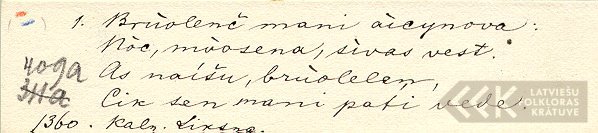 1. Brūolenč mani àicynova:
Nōc, mòosena, sìvas vest.
As naíšu, brūoleleņ,
Cik sen mani paťi vede.
1360. Kaln. Liksna.
LATVIEŠU
FOLKLORAS
KRĀTUVE